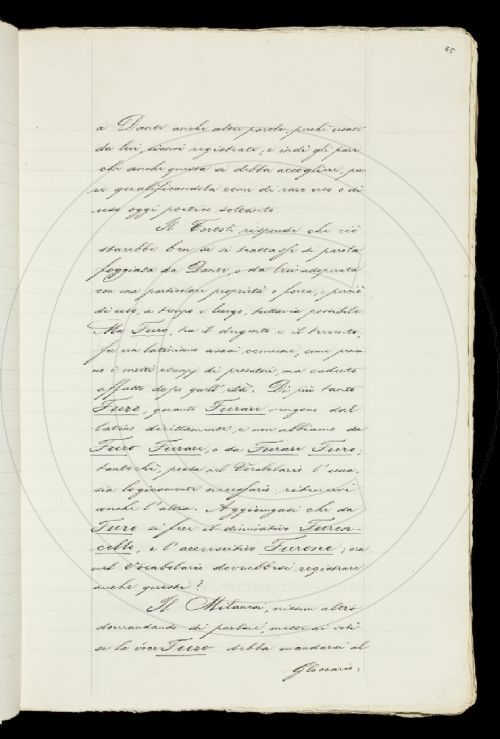 65
a Dante anche altre parole, perchè usate
da lui, siensi registrate; e indi gli pare
che anche questa si debba accogliere, pu-
re qualificandola come di raro uso o di
uso oggi poetico soltanto.
Il Tortoli risponde che ciò
starebbe bene se si trattasse di parola
foggiata da Dante, o da lui adoperata
con una particolare proprietà o forza, e perciò
di uso, a tempo e luogo, tuttavia possibile.
Ma Furo, tra il dugento e il trecento,
fu un latinismo assai comune, come prova-
no i molti esempj di prosatori, ma caduto
affatto dopo quell' età. Di più tanto
Furo, quanto Furare vengono dal
latino direttamente, e non abbiamo da
Furo Furare, o da Furare Furo;
tantochè, posta nel Vocabolario l' una,
sia logicamente necessario ritrovarvi
anche l' altra. Aggiungasi che da
Furo si fece il diminutivo Furon-
cello, e l' accrescitivo Furone; ora
nel Vocabolario dovrebbesi registrare
anche questi?
Il Milanesi, niesun altro
domandando di parlare, mette ai voti
se la voce Furo debba mandarsi al
Glossario;